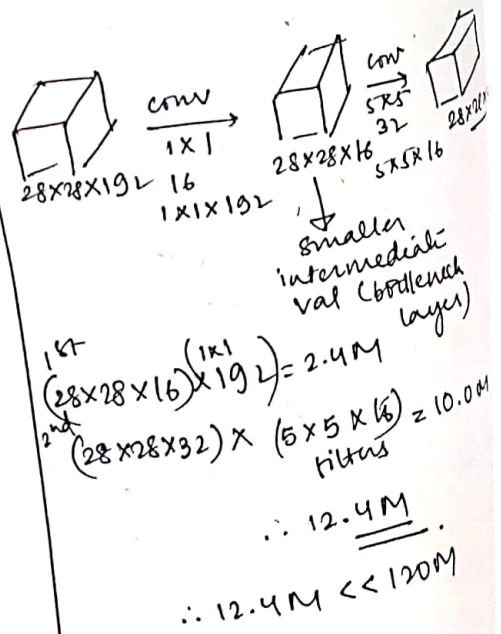 conv
1×1
16
1×1×192
28×28×192
conv
5×5
32
5×5×16
28×28×16
smaller
intermediate
val (bottleneck
layer)
1st
(28×28×16)×(1×1×192) = 2.4M
2nd
(28×28×32) × (5×5×16) = 10.0M
filters
∴ 12.4M
∴ 12.4M << 120M